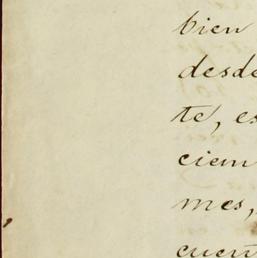 bien
desde
te, es
cien
mes,
cuen